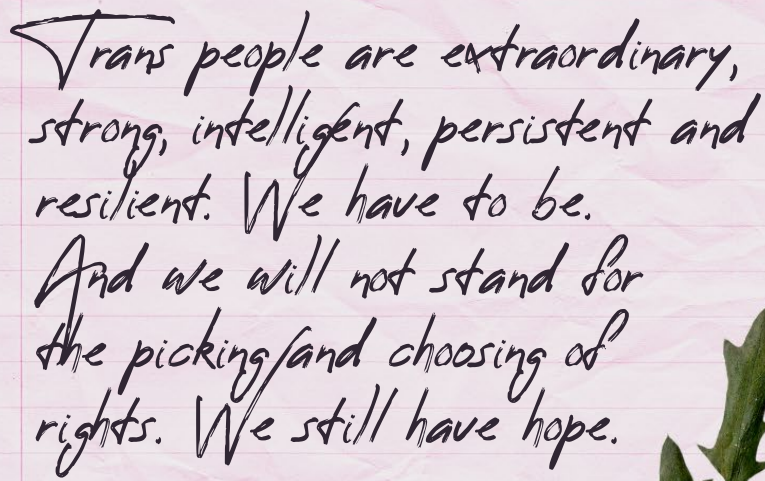 Trans people are extraordinary,
strong, intelligent, persistent and
resilient. We have to be.
And we will not stand for
the picking and choosing of
rights. We still have hope.